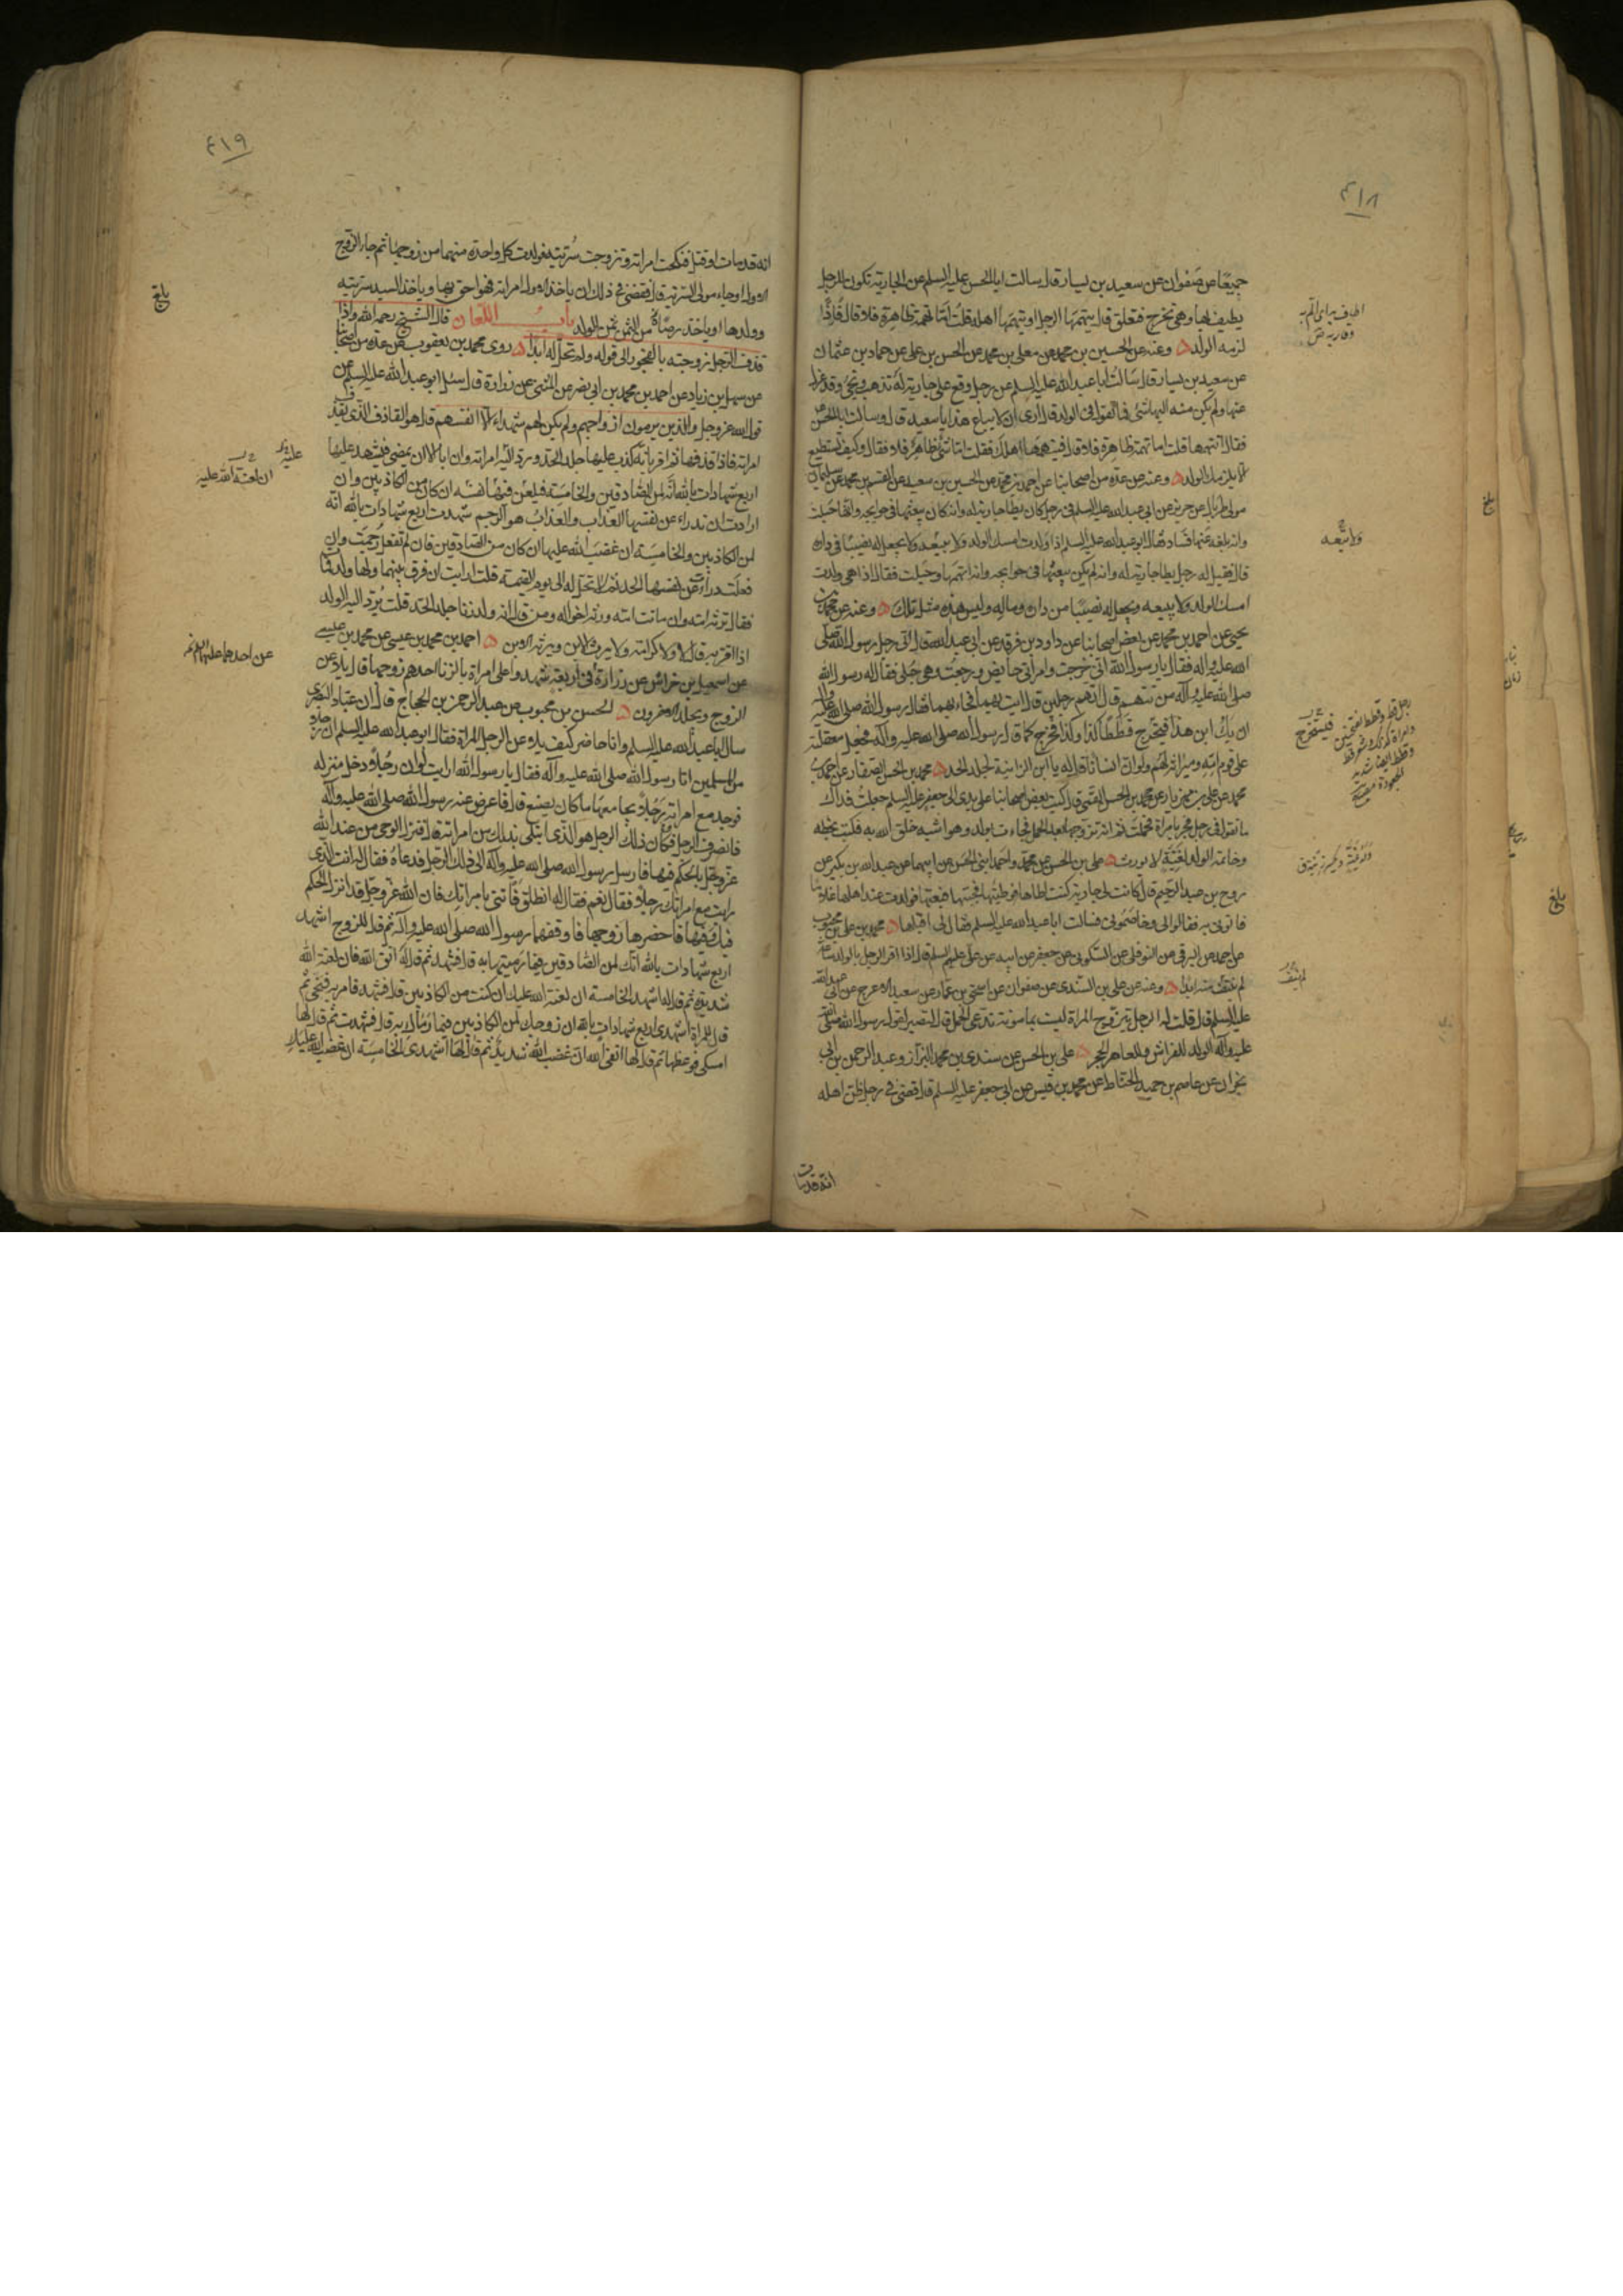 ٤١٨
جميعًا عن صفوان عن سعيد بن يسار قال سالت ابا الحسن عليه السلم عن الجارية تكون للرجل
يطيف بها وهي تخرج فتعلق قال يتهمها الرجل او يتهمها اهله قلت اما تهمة ظاهرة فلا قال فاذًا
لزمه الولد وعنه عن الحسين بن محمد عن معلى بن محمد عن الحسن بن علي عن حماد بن عثمان
عن سعيد بن يسار قال سالت ابا عبد الله عليه السلم عن رجل وقع على جارية له تذهب وتجئ وقد عزل
عنها ولم يكن منه اليها شئ فما تقول في الولد قال ارى ان لا يباع هذا يا سعيد قال وسالت ابا الحسن
فقال اتتهمها قلت اما تهمة ظاهرة فلا قال فيتهمها اهلك فقلت اما شئ ظاهر فلا فقال وكيف تستطيع
ان لا يلزمك الولد وعنه عن عدة من اصحابنا عن احمد بن محمد عن الحسين بن سعيد عن القسم بن محمد عن سليمان
مولى طربال عن حريز عن ابي عبد الله عليه السلم في رجل كان يطأ جارية له وانه كان يبعثها في حوايجه وانها حبلت
وانه بلغه عنها فساد فقال ابو عبد الله عليه السلم اذا ولدت امسك الولد ولا يبيعه ولا يجعل له نصيبًا في داره
قال فقيل له رجل يطا جارية له وانه لم يكن يبعثها في حوايجه وانه اتهمها وحبلت فقال اذا هي ولدت
امسك الولد ولا يبيعه ويجعل له نصيبًا من داره وماله وليس هذه مثل تلك وعنه عن محمد بن
يحيى عن احمد بن محمد عن بعض اصحابنا عن داود بن فرقد عن ابي عبد الله قال اتى رجل رسول الله صلى
الله عليه واله فقال يا رسول الله اني خرجت وامرأتي حايض ورجعت وهي حبلى فقال له رسول الله
صلى الله عليه وآله من تتهم قال اتهم رجلين قال ائت بهما فجاء بهما فقال رسول الله صلى الله عليه وآله
ان يك ابن هذا فيخرج قططًا كذا وكذا فخرج كما قال رسول الله صلى الله عليه وآله فجعل معقلته
على قوم امه وميراثه لهم ولو ان انسانًا قال له يا ابن الزانية لجلد الحد محمد بن الحسن الصفار عن احمد بن
محمد عن علي بن مهزيار عن محمد بن الحسن القمي قال كتب بعض اصحابنا على يدي الى جعفر عليه السلم جعلت فداك
ما تقول في رجل فجر بامراة فحملت ثم انه تزوجها بعد الحمل فجاءت بولد وهو اشبه خلق الله به فكتب بخطه
وخاتمه الولد لغية لا يورث علي بن الحسن عن محمد واحمد ابني الحسن عن ابيهما عن عبد الله بن بكير عن
روح بن عبد الرحيم قال كانت لي جارية كنت اطاها فوطئتها فبعتها فولدت عند اهلها غلامًا
فاتوني به فقالوا لي وخاصموني فسالت ابا عبد الله عليه السلم فقال لي اقبلها محمد بن علي بن محبوب
عن احمد عن البرقي عن النوفلي عن السكوني عن جعفر عن ابيه عن علي عليهم السلم قال اذا اقر الرجل بالولد ساعة
لم ينتف منه ابدًا وعنه عن علي بن السندي عن صفوان عن اسحق بن عمار عن سعيد الاعرج عن ابي عبد الله
عليه السلم قال قلت له الرجل يتزوج المراة ليست بمامونة تدعي الحمل قال ليصبر لقول رسول الله صلى الله
عليه وآله الولد للفراش وللعاهر الحجر علي بن الحسن عن سندي بن محمد البزاز وعبد الرحمن بن ابي
نجران عن عاصم بن حميد الحناط عن محمد بن قيس عن ابي جعفر عليه السلم قال قضى في رجل ظن اهله
انه قد مات
وابيعه
بلغ
٤١٩
انه قد مات او قتل فنكحت امراته وتزوجت سريته فولدت كل واحدة منهما من زوجها ثم جاء الزوج
الاول او جاء مولى السرية قال فقضى في ذلك ان ياخذ الاول امراته فهو احق بها وياخذ السيد سريته
وولدها او ياخذ رضًا من الثمن ثمن الولد باب اللعان قال الشيخ رحمه الله واذا
قذف الرجل زوجته بالفجور الى قوله ولم تحل له ابدًا روى محمد بن يعقوب عن عدة من اصحابنا
عن سهل بن زياد عن احمد بن محمد بن ابي نصر عن المثنى عن زرارة قال سئل ابو عبد الله عليه السلم عن
قول الله عز وجل والذين يرمون ازواجهم ولم يكن لهم شهداء الا انفسهم قال هو القاذف الذي يقذف
امراته فاذا قذفها ثم اقر بانه كذب عليها جلد الحد ورد اليه امراته وان ابا الا ان يمضي فيشهد عليها
اربع شهادات بالله انه لمن الصادقين والخامسة فليلعن فيها نفسه ان كان من الكاذبين وان
ارادت ان تدراء عن نفسها العذاب والعذاب هو الرجم شهدت اربع شهادات بالله انه
لمن الكاذبين والخامسة ان غضب الله عليها ان كان من الصادقين فان لم تفعل رجمت وان
فعلت دراءت عن نفسها الحد ثم لا تحل له الى يوم القيمة قلت ارايت ان فرق بينهما ولها ولد فمات
فقال ترثه امه وان ماتت امه ورثه اخواله ومن قال انه ولد زنا جلد الحد قلت يرد اليه الولد
اذا اقر به قال لا ولا كرامة ولا يرث الابن ويرثه الابن احمد بن محمد بن عيسى عن محمد بن عيسى
عن اسمعيل بن خراش عن زرارة في اربعة شهدوا على امراة بالزنا احدهم زوجها قال يلاعن
الزوج ويجلد الاخرون الحسن بن محبوب عن عبد الرحمن بن الحجاج قال ان عباد البصري
سال ابا عبد الله عليه السلم وانا حاضر كيف يلاعن الرجل المراة فقال ابو عبد الله عليه السلم ان رجلا
من المسلمين اتا رسول الله صلى الله عليه وآله فقال يا رسول الله ارايت لو ان رجلًا دخل منزله
فوجد مع امراته رجلًا يجامعها ما كان يصنع قال فاعرض عنه رسول الله صلى الله عليه وآله
فانصرف الرجل وكان ذلك الرجل هو الذي ابتلى بذلك من امراته قال فنزل الوحي من عند الله
عز وجل بالحكم فيها فارسل رسول الله صلى الله عليه وآله الى ذلك الرجل فدعاه فقال له انت الذي
رايت مع امراتك رجلًا فقال نعم فقال له انطلق فاتني بامراتك فان الله عز وجل قد انزل الحكم
فيك وفيها فاحضرها زوجها فاوقفها رسول الله صلى الله عليه وآله ثم قال للزوج اشهد
اربع شهادات بالله انك لمن الصادقين فيما رميتها به قال فشهد ثم قال له اتق الله فان لعنة الله
شديدة ثم قال له اشهد الخامسة ان لعنة الله عليك ان كنت من الكاذبين قال فشهد فامر به فنحي ثم
قال للمراة اشهدي اربع شهادات بالله ان زوجك لمن الكاذبين فيما رماك به قال فشهدت ثم قال لها
امسكي فوعظها ثم قال لها اتقي الله ان غضب الله شديد ثم قال لها اشهدي الخامسة ان غضب الله عليك
بلغ
ان لعنة الله عليه
عن احدهما عليهما السلم